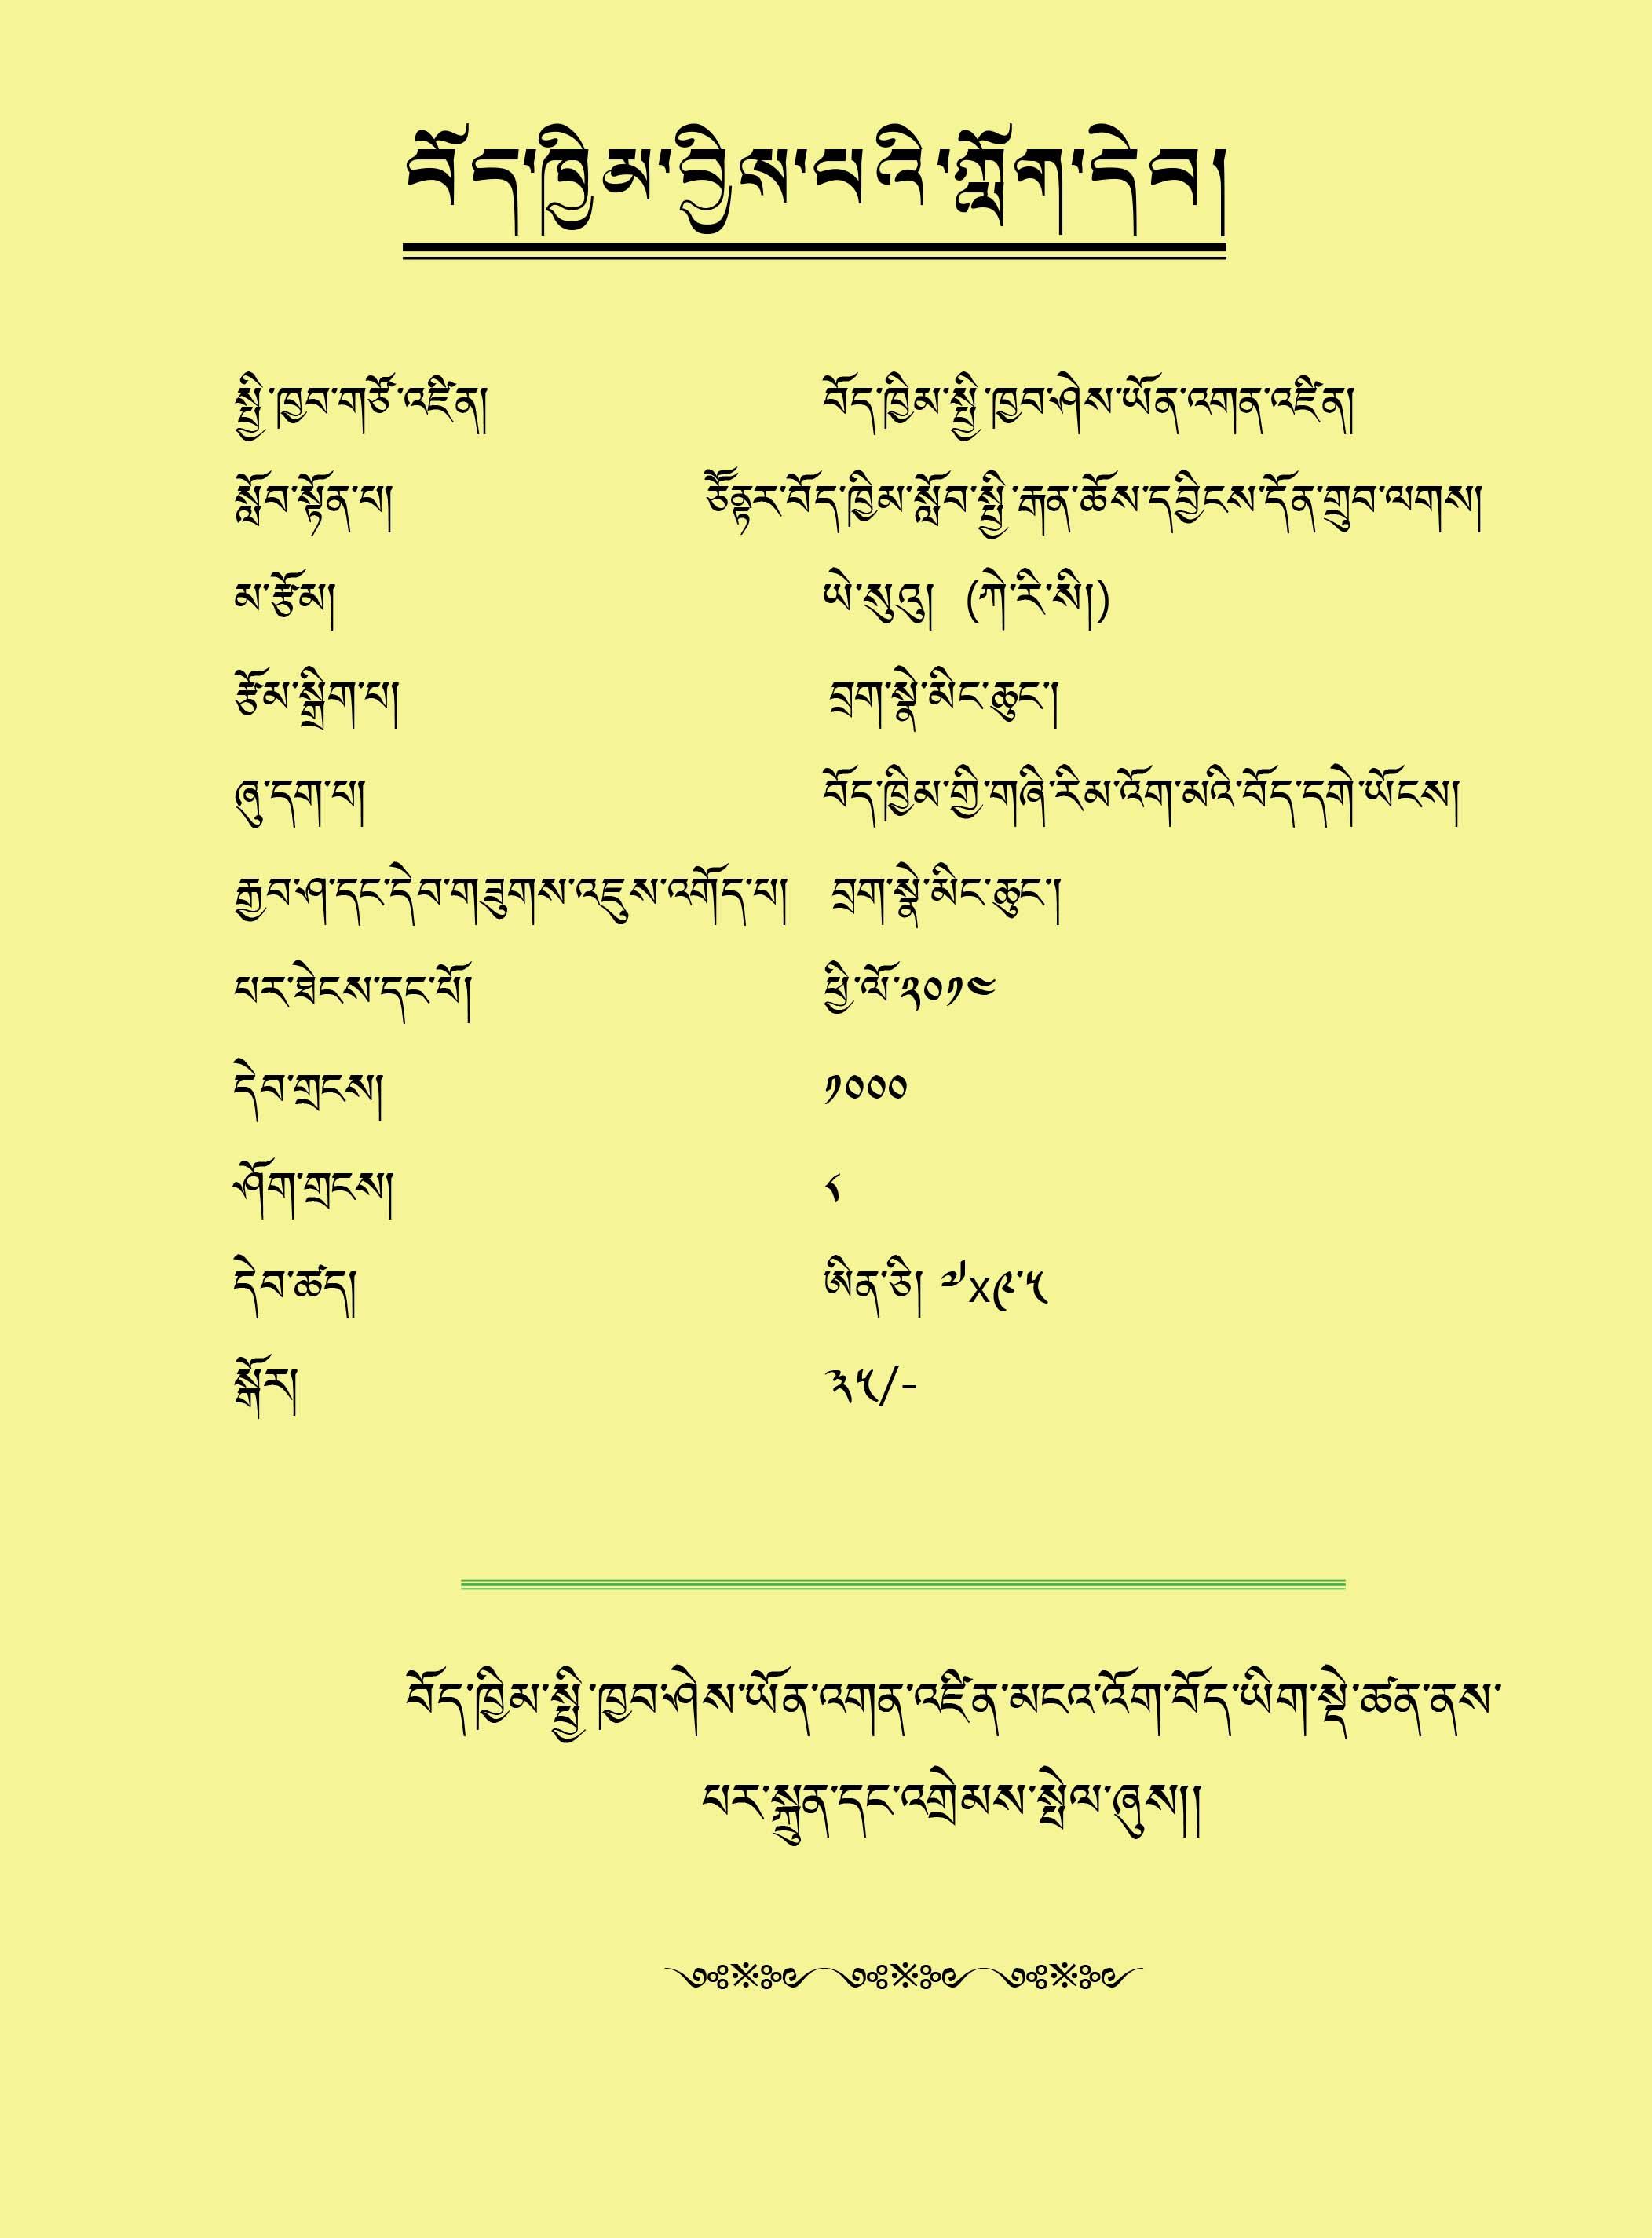 བོད་ཁྱིམ་བྱིས་པའི་ཀློག་དེབ།
སྤྱི་ཁྱབ་གཙོ་འཛིན། བོད་ཁྱིམ་སྤྱི་ཁྱབ་ཤེས་ཡོན་འགན་འཛིན།
སློབ་སྟོན་པ། ཙོནྟར་བོད་ཁྱིམ་སློབ་སྤྱི་རྒན་ཆོས་དབྱིངས་དོན་གྲུབ་ལགས།
མ་རྩོམ། ཡེ་སུའུ། (ཀེ་རི་སི།)
རྩོམ་སྒྲིག་པ། བྲག་སྣེ་མིང་ཆུང་།
ཞུ་དག་པ། བོད་ཁྱིམ་གྱི་གཞི་རིམ་འོག་མའི་བོད་དགེ་ཡོངས།
རྒྱབ་ཤ་དང་དེབ་གཟུགས་འཇུས་འགོད་པ། བྲག་སྣེ་མིང་ཆུང་།
པར་ཐེངས་དང་པོ། ཕྱི་ལོ་༢༠༡༤
དེབ་གྲངས། ༡༠༠༠
ཤོག་གྲངས། ༨
དེབ་ཚད། ཨིན་ཅི། ༧x༩་༥
སྒོར། ༣༥/-
བོད་ཁྱིམ་སྤྱི་ཁྱབ་ཤེས་ཡོན་འགན་འཛིན་མངའ་འོག་བོད་ཡིག་སྡེ་ཚན་ནས་
པར་སྐྲུན་དང་འགྲེམས་སྤེལ་ཞུས།།